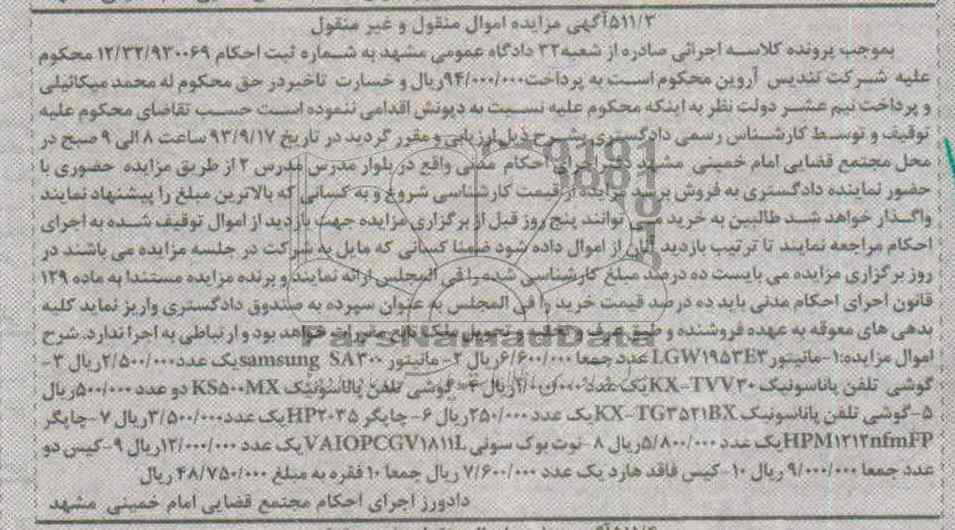 ۵۱۱/۳آگهی مزایده اموال منقول و غیر منقول
بموجب پرونده کلاسه اجرائی صادره از شعبه۳۲ دادگاه عمومی مشهد به شماره ثبت احکام ۱۲/۳۲/۹۳۰۰۶۹ محکوم
علیه شرکت تندیس آروین محکوم است به پرداخت۹۴/۰۰۰/۰۰۰ریال و خسارت تاخیر در حق محکوم له محمد میکائیلی
و پرداخت نیم عشر دولت نظر به اینکه محکوم علیه نسبت به دیونش اقدامی ننموده است حسب تقاضای محکوم علیه
توقیف و توسط کارشناس رسمی دادگستری بشرح ذیل ارزیابی و مقرر گردید در تاریخ ۹۳/۹/۱۷ ساعت ۸ الی ۹ صبح در
محل مجتمع قضایی امام خمینی مشهد دفتر اجرای احکام مدنی واقع در بلوار مدرس مدرس ۲ از طریق مزایده حضوری با
حضور نماینده دادگستری به فروش برسد مزایده از قیمت کارشناسی شروع و به کسانی که بالاترین مبلغ را پیشنهاد نمایند
واگذار خواهد شد طالبین به خرید می توانند پنج روز قبل از برگزاری مزایده جهت بازدید از اموال توقیف شده به اجرای
احکام مراجعه نمایند تا ترتیب بازدید آنان از اموال داده شود ضمنا کسانی که مایل به شرکت در جلسه مزایده می باشند در
روز برگزاری مزایده می بایست ده درصد مبلغ کارشناسی شده را فی المجلس ارائه نمایند و برنده مزایده مستندا به ماده ۱۲۹
قانون اجرای احکام مدنی باید ده درصد قیمت خرید را فی المجلس به عنوان سپرده به صندوق دادگستری واریز نماید کلیه
بدهی های معوقه به عهده فروشنده و طبق عرف و تخلیه و تحویل ملک تابع مقررات خواهد بود و ارتباطی به اجرا ندارد. شرح
اموال مزایده:۱-مانیتور LGW۱۹۵۳E۳ عدد جمعا ۶/۶۰۰/۰۰۰ریال ۲- مانیتور samsung SA۳۰۰یک عدد۲/۵۰۰/۰۰۰ریال ۳-
گوشی تلفن پاناسونیک KX-TVV۳۰یک عدد۱/۰۰۰/۰۰۰ریال ۴-گوشی تلفن پاناسونیک KS۵۰۰MX دو عدد ۵۰۰/۰۰۰ریال
۵-گوشی تلفن پاناسونیک KX-TG۳۵۲۱BXیک عدد ۲۵۰/۰۰۰ریال ۶-چاپگر HP۲۰۳۵یک عدد۳/۵۰۰/۰۰۰ریال ۷-چاپگر
HPM۱۲۱۲nfmFPیک عدد ۵/۸۰۰/۰۰۰ریال ۸-نوت بوک سونی VAIOPCGV۱۸۱۱Lیک عدد ۱۲/۰۰۰/۰۰۰ریال ۹-کیس دو
عدد جمعا ۹/۰۰۰/۰۰۰ ریال ۱۰-کیس فاقد هارد یک عدد ۷/۶۰۰/۰۰۰ ریال جمعا ۱۰ فقره به مبلغ ۴۸/۷۵۰/۰۰۰ ریال
دادورز اجرای احکام مجتمع قضایی امام خمینی مشهد
ParsNamadData